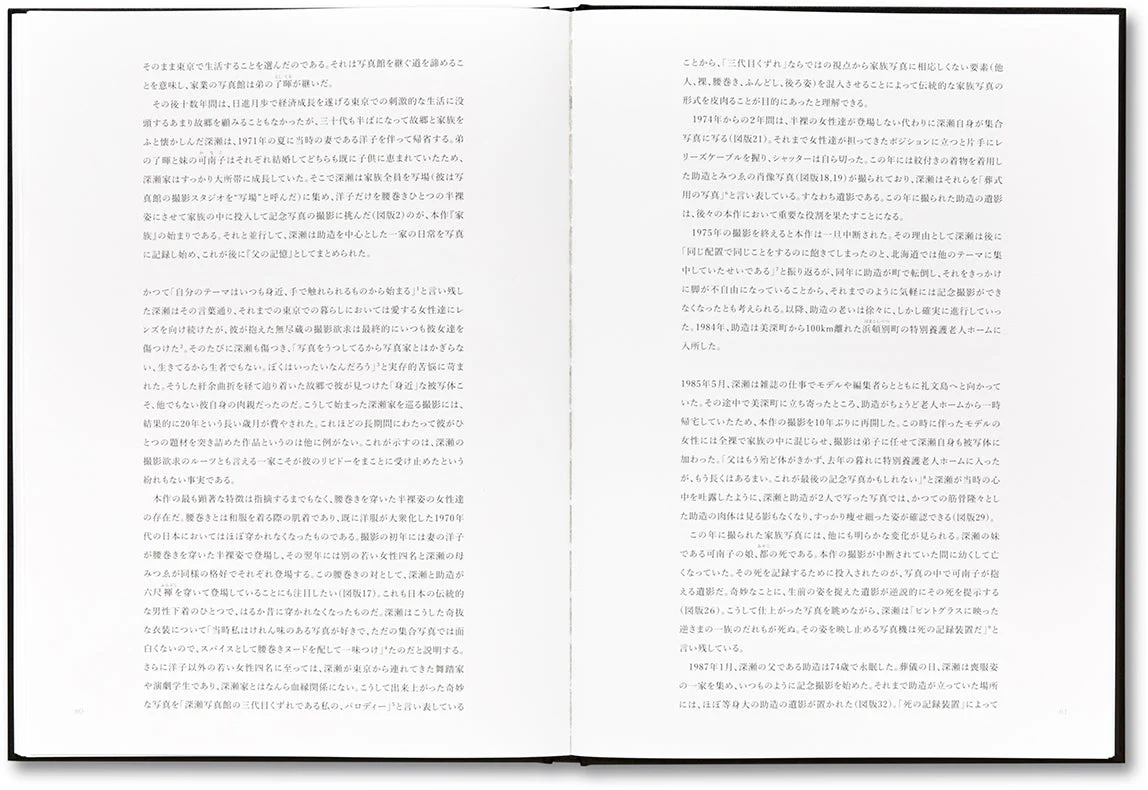 そのまま東京で生活することを選んだのである。それは写真館を継ぐ道を諦めるこ
とを意味し、家業の写真館は弟の了暉が継いだ。
その後十数年間は、日進月歩で経済成長を遂げる東京での刺激的な生活に没
頭するあまり故郷を顧みることもなかったが、三十代も半ばになって故郷と家族を
ふと懐かしんだ深瀬は、1971年の夏に当時の妻である洋子を伴って帰省する。弟
の了暉と妹の可南子はそれぞれ結婚してどちらも既に子供に恵まれていたため、
深瀬家はすっかり大所帯に成長していた。そこで深瀬は家族全員を写場(彼は写
真館の撮影スタジオを“写場”と呼んだ)に集め、洋子だけを腰巻きひとつの半裸
姿にさせて家族の中に投入して記念写真の撮影に挑んだ(図版2)のが、本作『家
族』の始まりである。それと並行して、深瀬は助造を中心とした一家の日常を写真
に記録し始め、これが後に『父の記憶』としてまとめられた。
かつて「自分のテーマはいつも身近、手で触れられるものから始まる」¹と言い残し
た深瀬はその言葉通り、それまでの東京での暮らしにおいては愛する女性達にレ
ンズを向け続けたが、彼が抱えた無尽蔵の撮影欲求は最終的にいつも彼女達を
傷つけた²。そのたびに深瀬も傷つき、「写真をうつしてるから写真家とはかぎらな
い、生きてるから生者でもない。ぼくはいったいなんだろう」³と実存的苦悩に苛ま
れた。そうした紆余曲折を経て辿り着いた故郷で彼が見つけた「身近」な被写体こ
そ、他でもない彼自身の肉親だったのだ。こうして始まった深瀬家を巡る撮影には、
結果的に20年という長い歳月が費やされた。これほどの長期間にわたって彼がひ
とつの題材を突き詰めた作品というのは他に例がない。これが示すのは、深瀬の
撮影欲求のルーツとも言える一家こそが彼のリビドーをまことに受け止めたという
紛れもない事実である。
本作の最も顕著な特徴は指摘するまでもなく、腰巻きを穿いた半裸姿の女性達
の存在だ。腰巻きとは和服を着る際の肌着であり、既に洋服が大衆化した1970年
代の日本においてはほぼ穿かれなくなったものである。撮影の初年には妻の洋子
が腰巻きを穿いた半裸姿で登場し、その翌年には別の若い女性四名と深瀬の母
みつゑが同様の格好でそれぞれ登場する。この腰巻きの対として、深瀬と助造が
六尺褌を穿いて登場していることにも注目したい(図版17)。これも日本の伝統的
な男性下着のひとつで、はるか昔に穿かれなくなったものだ。深瀬はこうした奇抜
な衣装について「当時私はけれん味のある写真が好きで、ただの集合写真では面
白くないので、スパイスとして腰巻きヌードを配して一味つけ」⁴たのだと説明する。
さらに洋子以外の若い女性四名に至っては、深瀬が東京から連れてきた舞踏家
や演劇学生であり、深瀬家とはなんら血縁関係にない。こうして出来上がった奇妙
な写真を「深瀬写真館の三代目くずれである私の、パロディー」⁵と言い表している
60
ことから、「三代目くずれ」ならではの視点から家族写真に相応しくない要素(他
人、裸、腰巻き、ふんどし、後ろ姿)を混入させることによって伝統的な家族写真の
形式を皮肉ることが目的にあったと理解できる。
1974年からの2年間は、半裸の女性達が登場しない代わりに深瀬自身が集合
写真に写る(図版21)。それまで女性達が担ってきたポジションに立つと片手にレ
リーズケーブルを握り、シャッターは自ら切った。この年には紋付きの着物を着用し
た助造とみつゑの肖像写真(図版18,19)が撮られており、深瀬はそれらを「葬式
用の写真」⁶と言い表している。すなわち遺影である。この年に撮られた助造の遺影
は、後々の本作において重要な役割を果たすことになる。
1975年の撮影を終えると本作は一旦中断された。その理由として深瀬は後に
「同じ配置で同じことをするのに飽きてしまったのと、北海道では他のテーマに集
中していたせいである」⁷と振り返るが、同年に助造が町で転倒し、それをきっかけ
に脚が不自由になっていることから、それまでのように気軽には記念撮影ができ
なくなったとも考えられる。以降、助造の老いは徐々に、しかし確実に進行していっ
た。1984年、助造は美深町から100km離れた浜頓別町の特別養護老人ホームに
入所した。
1985年5月、深瀬は雑誌の仕事でモデルや編集者らとともに礼文島へと向かって
いた。その途中で美深町に立ち寄ったところ、助造がちょうど老人ホームから一時
帰宅していたため、本作の撮影を10年ぶりに再開した。この時に伴ったモデルの
女性には全裸で家族の中に混じらせ、撮影は弟子に任せて深瀬自身も被写体に
加わった。「父はもう殆ど体がきかず、去年の暮れに特別養護老人ホームに入った
が、もう長くはあるまい。これが最後の記念写真かもしれない」⁸と深瀬が当時の心
中を吐露したように、深瀬と助造が2人で写った写真では、かつての筋骨隆々とし
た助造の肉体は見る影もなくなり、すっかり痩せ細った姿が確認できる(図版29)。
この年に撮られた家族写真には、他にも明らかな変化が見られる。深瀬の妹
である可南子の娘、都の死である。本作の撮影が中断されていた間に幼くして亡
くなっていた。その死を記録するために投入されたのが、写真の中で可南子が抱
える遺影だ。奇妙なことに、生前の姿を捉えた遺影が逆説的にその死を提示する
(図版26)。こうして仕上がった写真を眺めながら、深瀬は「ピントグラスに映った
逆さまの一族のだれもが死ぬ。その姿を映し止める写真機は死の記録装置だ」⁹と
言い残している。
1987年1月、深瀬の父である助造は74歳で永眠した。葬儀の日、深瀬は喪服姿
の一家を集め、いつものように記念撮影を始めた。それまで助造が立っていた場所
には、ほぼ等身大の助造の遺影が置かれた(図版32)。「死の記録装置」によって
61